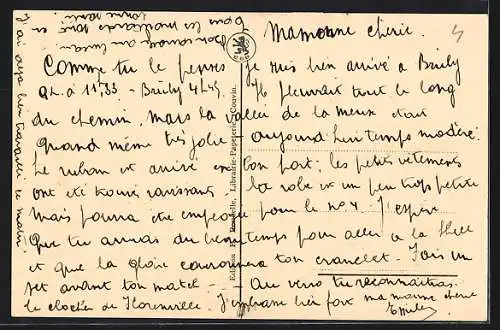 Mamoune chérie.
Comme tu le penses je suis bien arrivé à Brûly
Q.L. à 11h33 - Brûly 4h45. Il pleuvait tout le long
du chemin, mais la vallée de la Meuse était
quand même très jolie. Aujourd'hui temps modéré.
Le ruban est arrivé à bon port; les petits vêtements
ont été trouvés ravissants. La robe est un peu trop petite
mais pourra être employée pour le no 4. J'espère
que tu auras du beau temps pour aller à la
et que la gloire couronnera ton. Fais un
set avant ton match. Au verso tu reconnaîtras
le clocher de Florenville. J'embrasse bien fort ma moune chérie
Emile
J'ai déjà bien travaillé ce matin.
Bonsoir
tous les
Edition Rosselle, Librairie-Papeterie, Couvin.